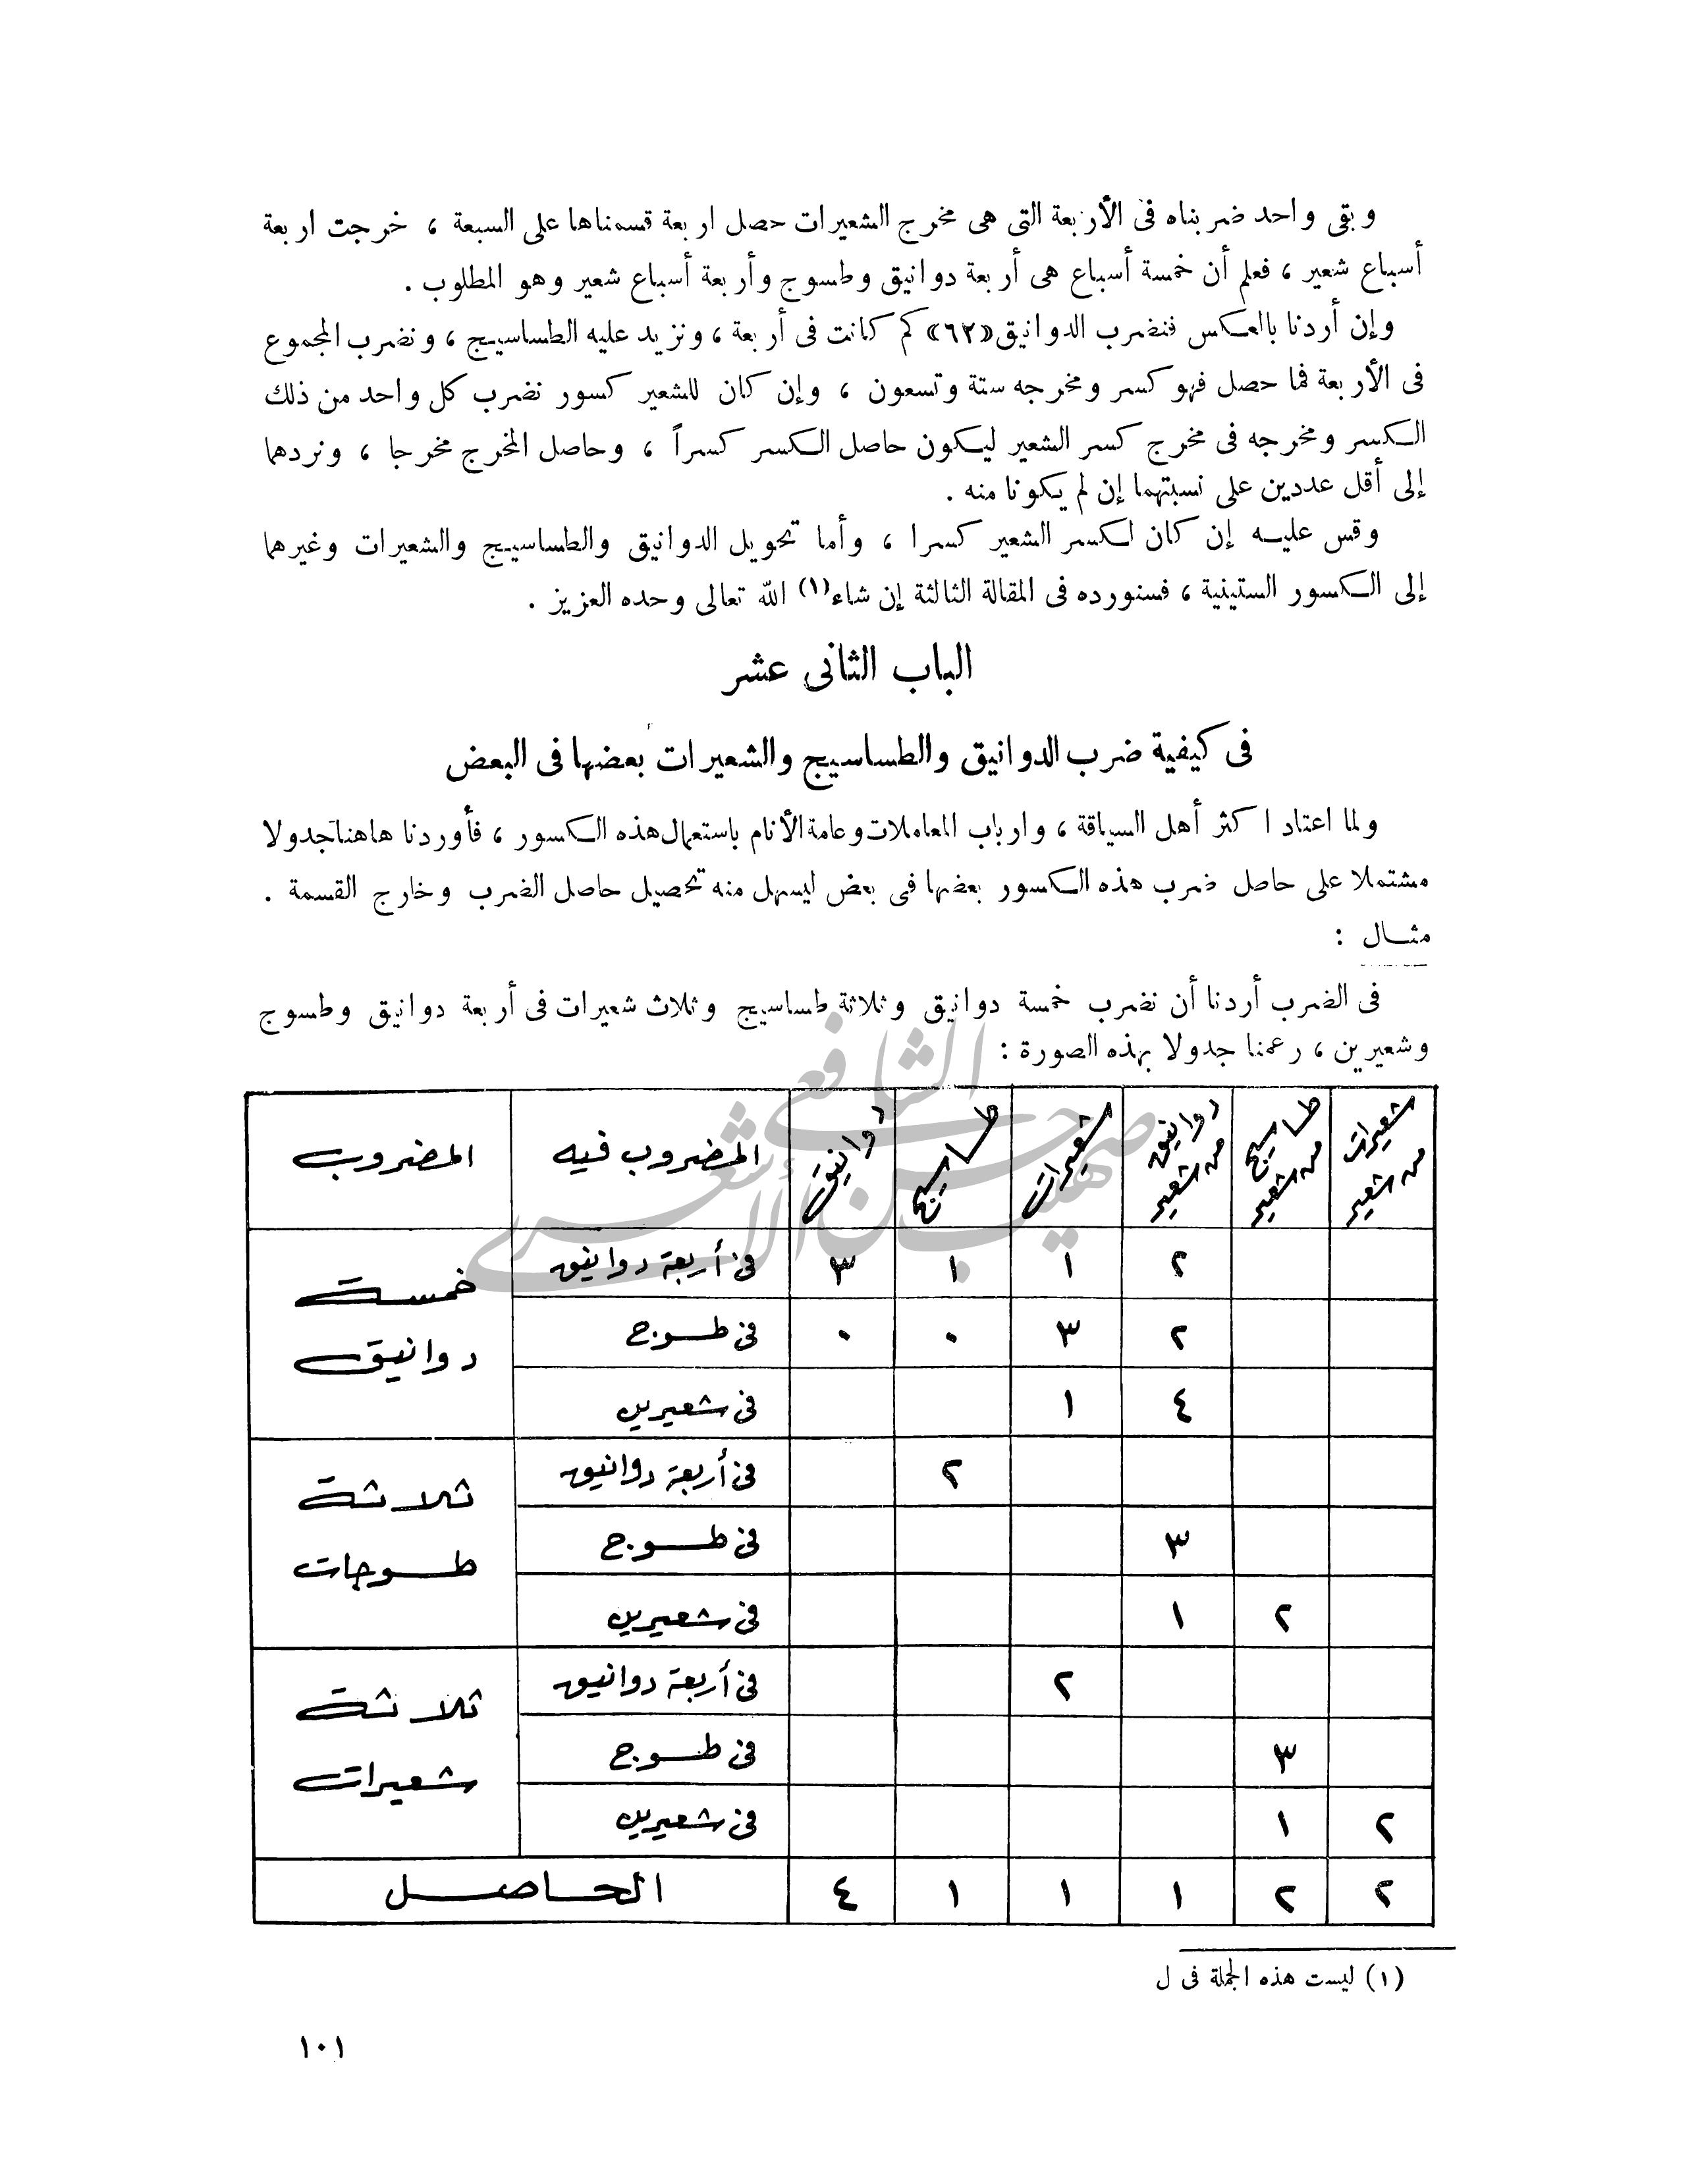 وبقى واحد ضربناه فى الأربعة التى هى مخرج الشعيرات حصل اربعة قسمناها على السبعة ، خرجت اربعة
أسباع شعير ، فعلم أن خمسة أسباع هى أربعة دوانيق وطسوج وأربعة أسباع شعير وهو المطلوب .
وإن أردنا بالعكس فنضرب الدوانيق «٦٢» كم كانت فى أربعة ، ونزيد عليه الطساسيج ، ونضرب المجموع
فى الأربعة فما حصل فهو كسر ومخرجه ستة وتسعون ، وإن كان للشعير كسور نضرب كل واحد من ذلك
الكسر ومخرجه فى مخرج كسر الشعير ليكون حاصل الكسر كسراً ، وحاصل المخرج مخرجا ، ونردهما
إلى أقل عددين على نسبتهما إن لم يكونا منه .
وقس عليه إن كان لكسر الشعير كسرا ، وأما تحويل الدوانيق والطساسيج والشعيرات وغيرهما
إلى الكسور الستينية ، فسنورده فى المقالة الثالثة إن شاء (١) الله تعالى وحده العزيز .
الباب الثانى عشر
فى كيفية ضرب الدوانيق والطساسيج والشعيرات بعضها فى البعض
ولما اعتاد اكثر أهل السياقة ، وارباب المعاملات وعامة الأنام باستعمال هذه الكسور ، فأوردنا هاهنا جدولا
مشتملا على حاصل ضرب هذه الكسور بعضها فى بعض ليسهل منه تحصيل حاصل الضرب وخارج القسمة .
مثال :
فى الضرب أردنا أن نضرب خمسة دوانيق وثلاثة طساسيج وثلاث شعيرات فى أربعة دوانيق وطسوج
وشعيرين ، رعمنا جدولا بهذه الصورة :
شعيرات من شعير طساسيج من شعير دوانيق من شعير شعيرات طساسيج دوانيق المضروب فيه المضروب
٢ ١ ١ ٣ فى أربعة دوانيق خمسة دوانيق
٢ ٣ ٠ ٠ فى طسوج
٤ ١ فى شعيرين
٢ فى أربعة دوانيق ثلاثة طسوجات
٣ فى طسوج
٢ ١ فى شعيرين
٢ فى أربعة دوانيق ثلاثة شعيرات
٣ فى طسوج
٢ ١ فى شعيرين
٢ ٢ ١ ١ ١ ٤ الحاصل
(١) ليست هذه الجملة فى ل
١٠١